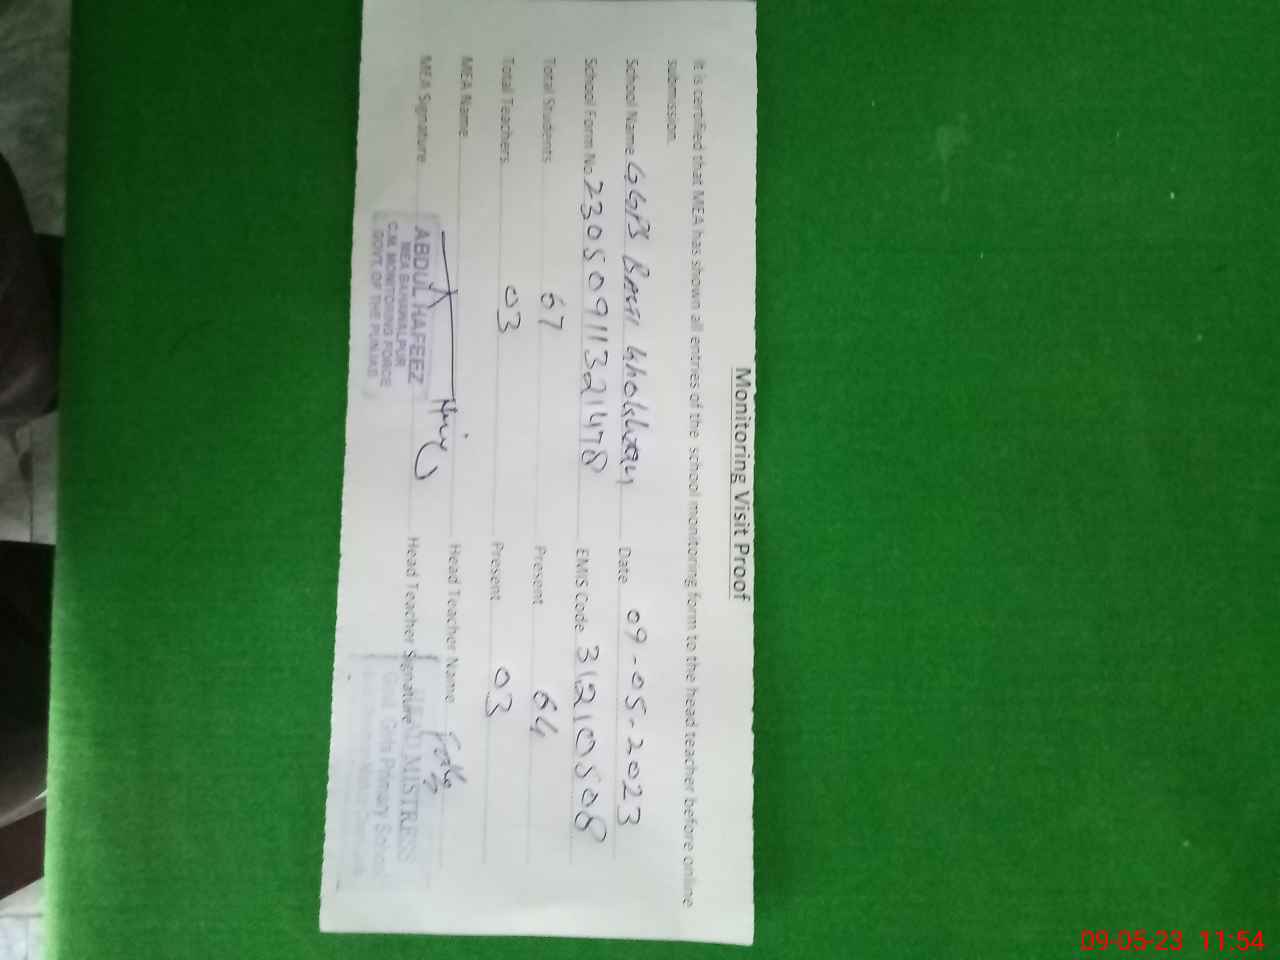 Monitoring Visit Proof
It is certified that MEA has shown all entries of the school monitoring form to the head teacher before online
submission.
School Name GGPS Basti Khokhran Date 09-05-2023
School Form No. 23050911321478 EMIS Code 31210508
Total Students 67 Present 64
Total Teachers 03 Present 03
MEA Name Head Teacher Name
MEA Signature Head Teacher Signature
ABDUL HAFEEZ
MEA BAHAWALPUR
C.M. MONITORING FORCE
GOVT. OF THE PUNJAB
HEAD MISTRESS
Govt. Girls Primary School
09-05-23 11:54